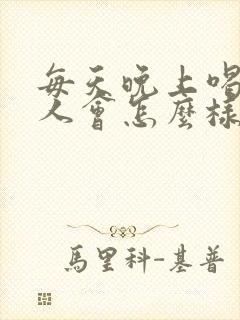 每天晚上喝
人會怎麼樣
馬里科-基普